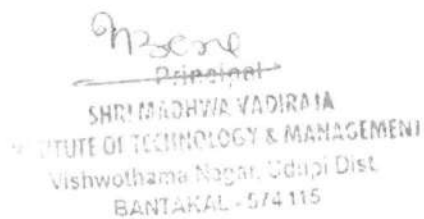 Principal
SHRI MADHWA VADIRAJA
TUTE OF TECHNOLOGY & MANAGEMENT
Vishwothama Nagar, Udupi Dist
BANTAKAL - 574 115